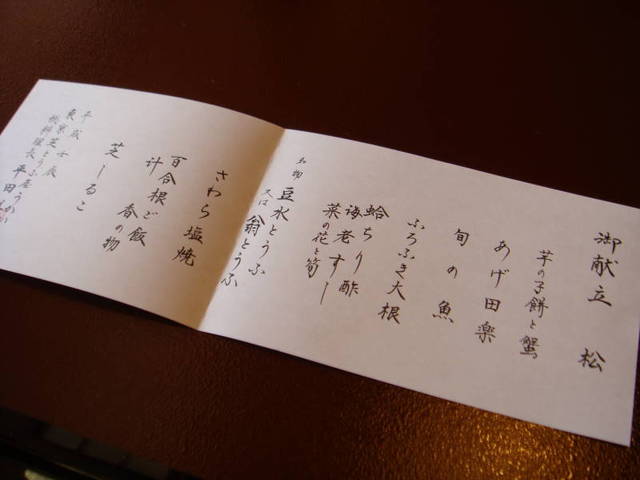 御献立 松
芋の子餅と蟹
あげ田楽
旬の魚
ふろふき大根
蛤ちり酢
海老すし
菜の花と筍
名物 豆水とうふ
又は 翁とうふ
さわら塩焼
百合根ご飯
汁 香の物
芝しるこ
平成 年
東京芝とうふ屋うかい
料理長 平田